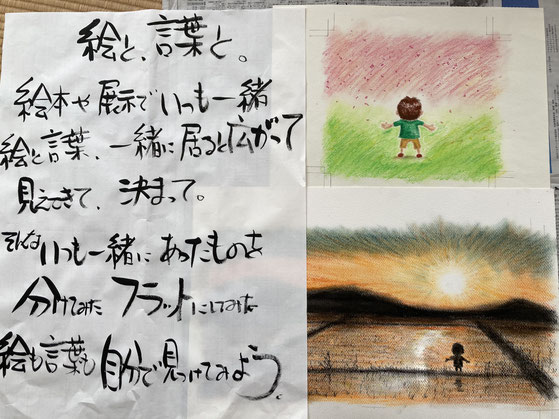 絵と、言葉と。
絵本や展示でいつも一緒
絵と言葉、一緒に居ると広がって
見えてきて、決まって。
そんないつも一緒にあったものを
分けてみた フラットにしてみた
絵も言葉も自分で見つけてみよう。